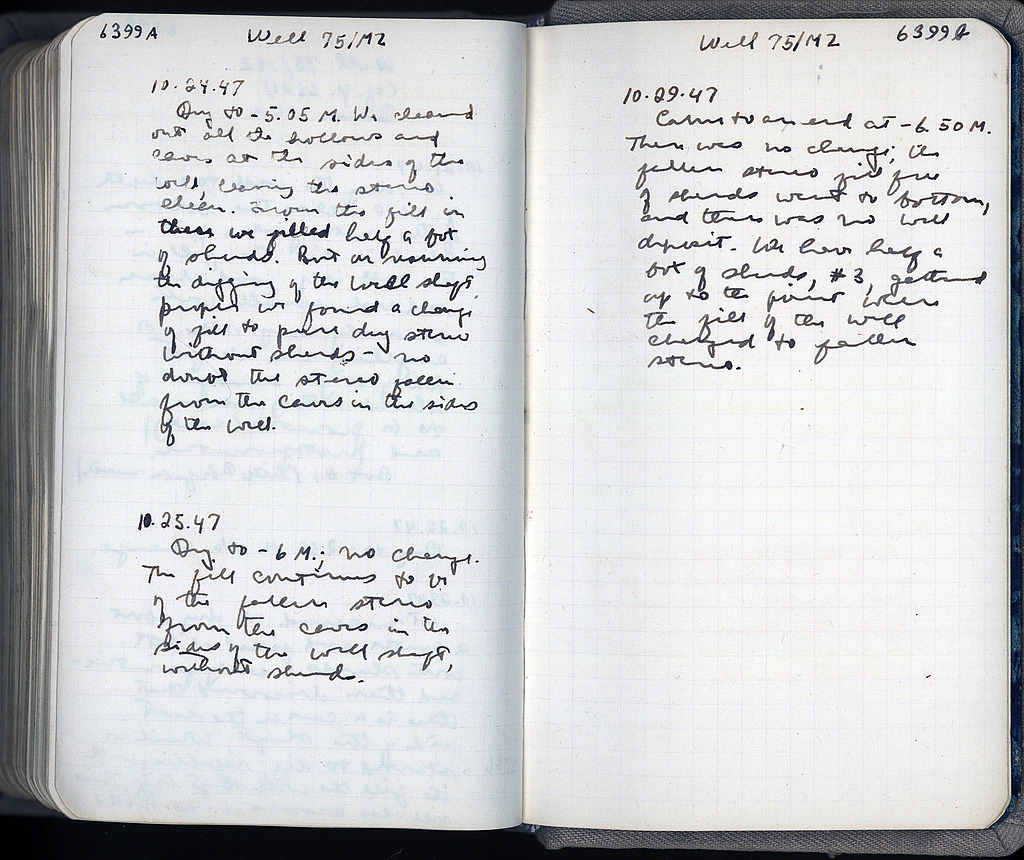 6399A
Well 75/M2
10.24.47
Dug to -5.05 M. We cleaned
out all the hollows and
caves at the sides of the
well, leaving the stereo
clean. From the fill in
these we filled half a bot
of sherds. But on resuming
the digging of the well shaft
proper we found a change
of fill to pure dug stereo
without sherds - no
doubt the stereo fallen
from the caves in the sides
of the well.
10.25.47
Dug to -6 M.; no change.
The fill continues to be
of the fallen stereo
from the caves in the
sides of the well shaft,
without sherds.
Well 75/M2
6399
10.29.47
Came to an end at -6.50 M.
There was no change; the
fallen stereo fill free
of sherds went to bottom,
and there was no well
deposit. We have half a
bot of sherds, #3, gathered
up to the point where
the fill of the well
changed to fallen
stereo.